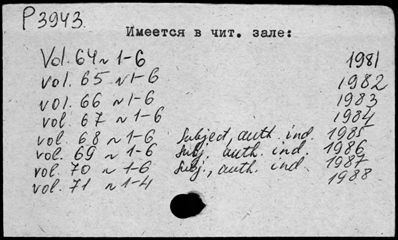 P3943.
Имеется в чит. зале:
Vol. 64 N 1-6 1981
vol. 65 N 1-6 1982
vol. 66 N 1-6 1983
vol. 67 N 1-6 1984
vol. 68 N 1-6 Subject, auth. ind. 1985
vol. 69 N 1-6 Subj., auth. ind. 1986
vol. 70 N 1-6 Subj., auth. ind. 1987
vol. 71 N 1-4 1988